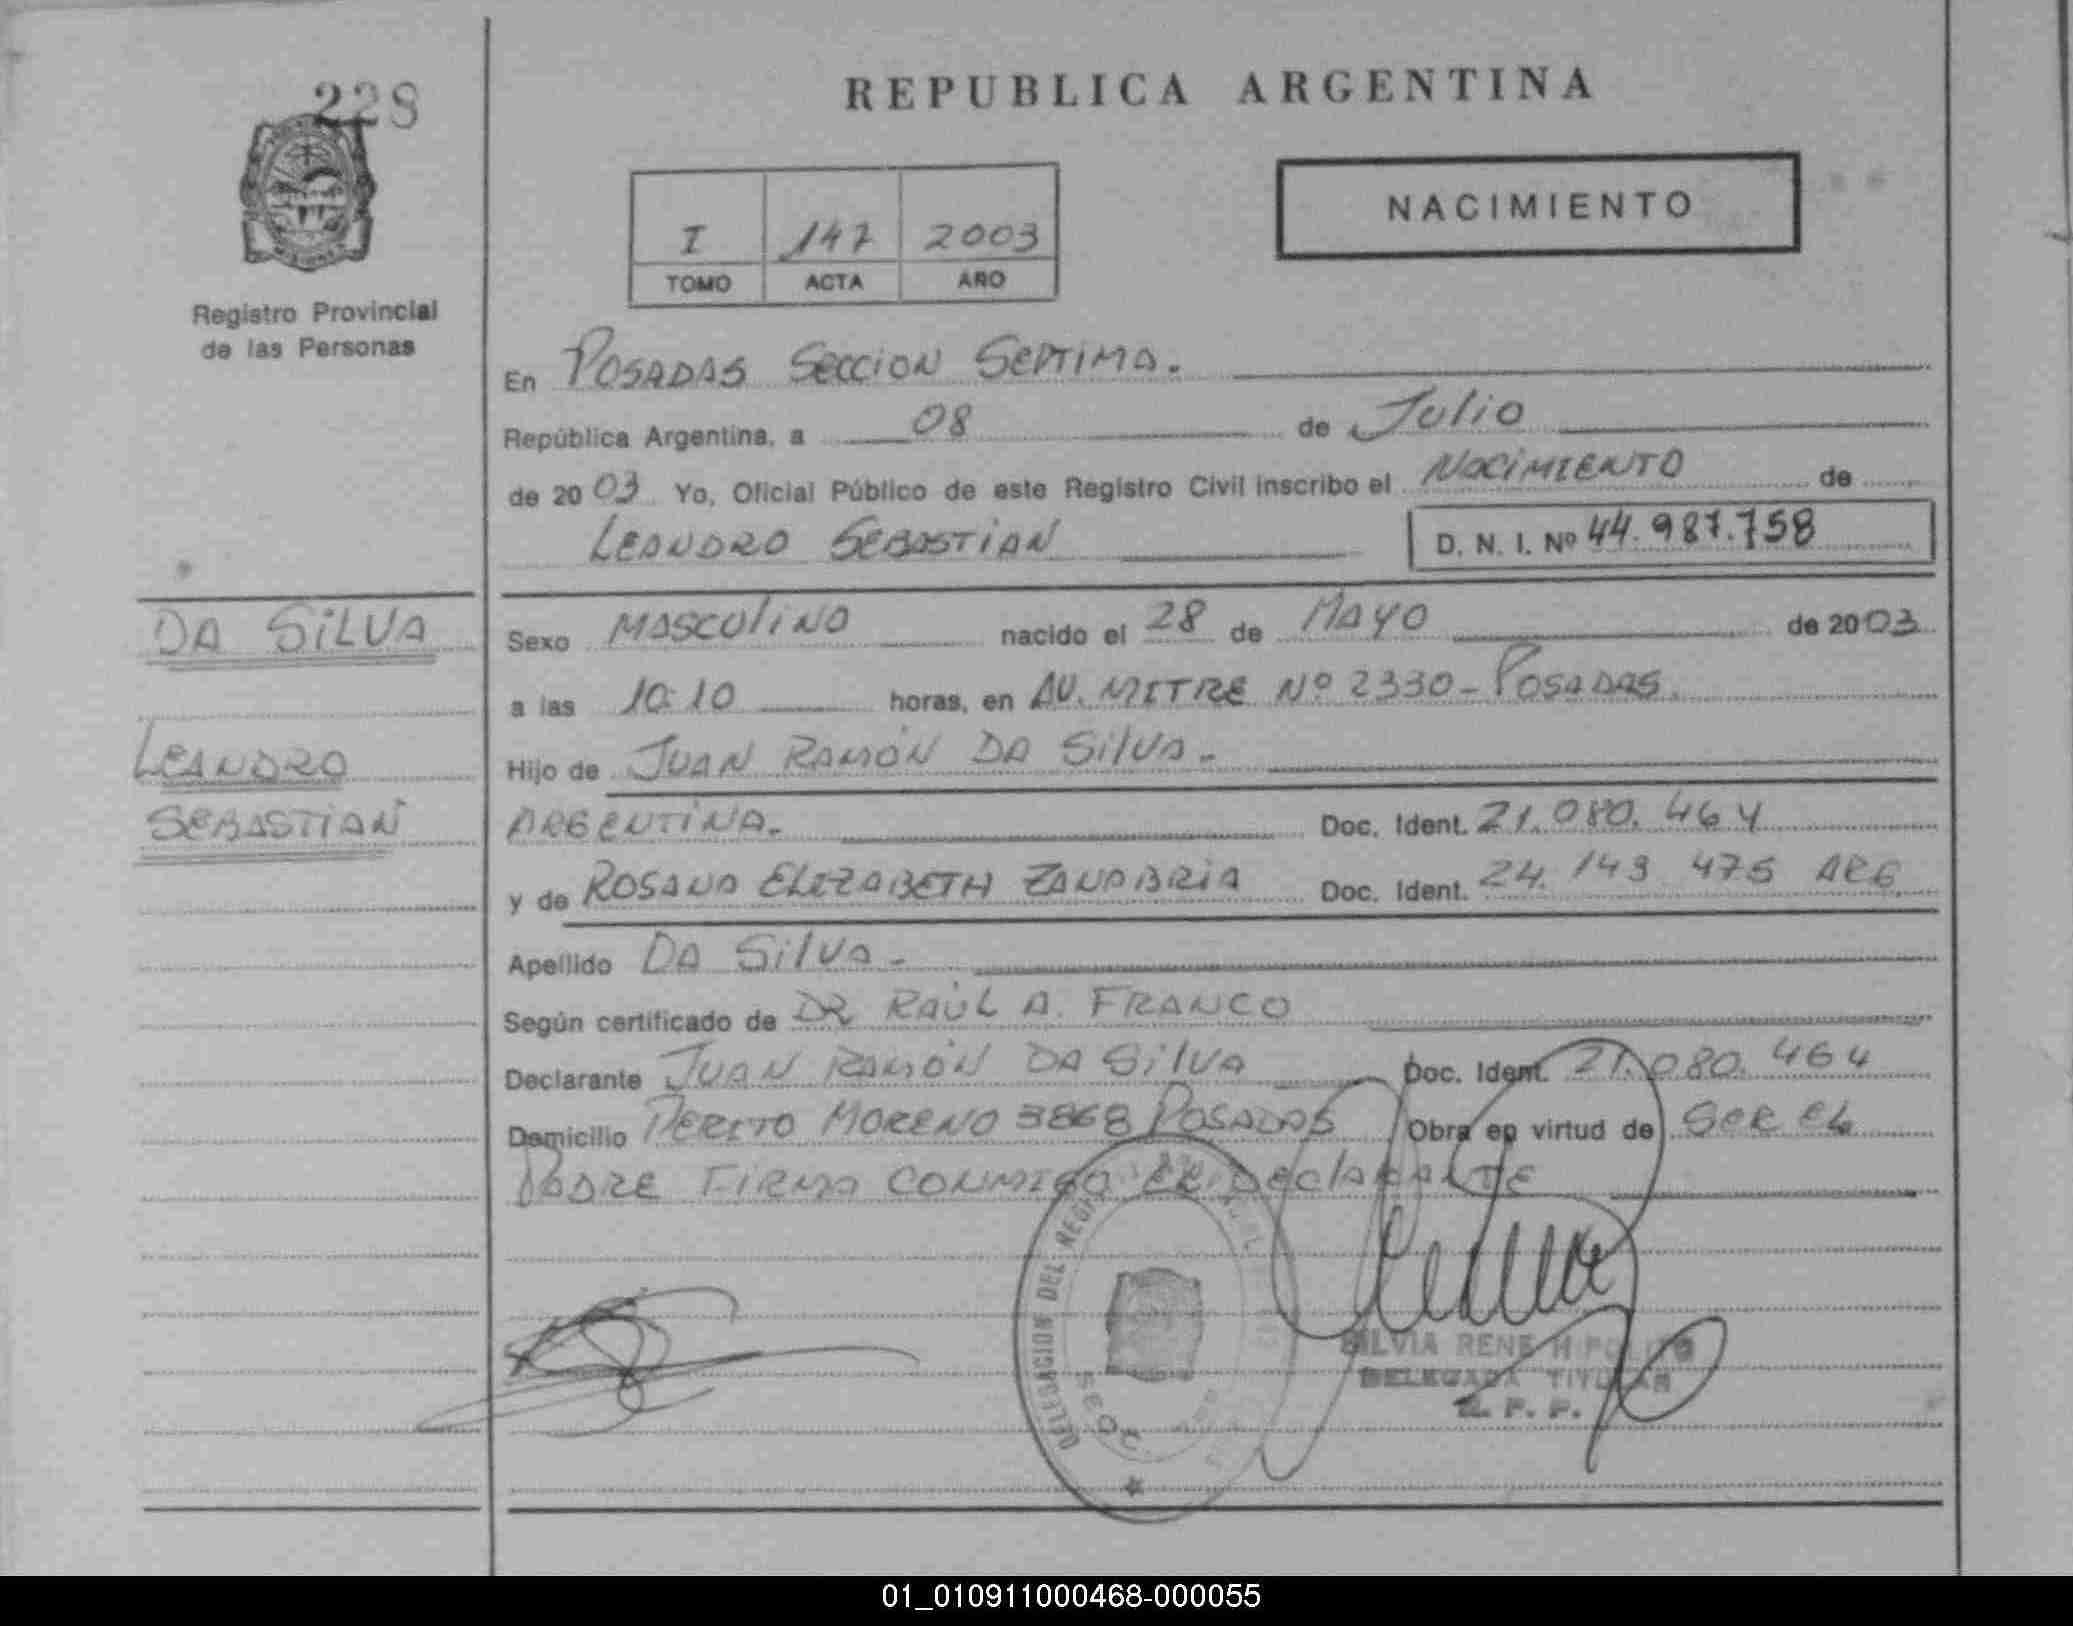 228
REPUBLICA ARGENTINA
NACIMIENTO
I 147 2003
TOMO ACTA AÑO
Registro Provincial
de las Personas
En POSADAS SECCION SEPTIMA.
República Argentina, a 08 de Julio
de 2003 Yo, Oficial Público de este Registro Civil inscribo el NACIMIENTO de
LEANDRO SEBASTIAN D. N. I. Nº 44.987.758
DA SILVA
LEANDRO
SEBASTIAN
Sexo MASCULINO nacido el 28 de MAYO de 2003
a las 10:10 horas, en AV. MITRE Nº 2330 - POSADAS.
Hijo de JUAN RAMÓN DA SILVA.-
ARGENTINA.- Doc. Ident. 21.080.464
y de ROSANA ELIZABETH ZANABRIA Doc. Ident. 24.143.475 ARG.
Apellido DA SILVA.-
Según certificado de DR RAÚL A. FRANCO
Declarante JUAN RAMÓN DA SILVA Doc. Ident. 21.080.464
Domicilio PERITO MORENO 3868 POSADAS Obra en virtud de SER EL
PADRE FIRMA CONMIGO EL DECLARANTE
DELEGACION DEL
SILVIA RENE HIPOLITO
DELEGADA TITULAR
R. P. P.
01_010911000468-000055